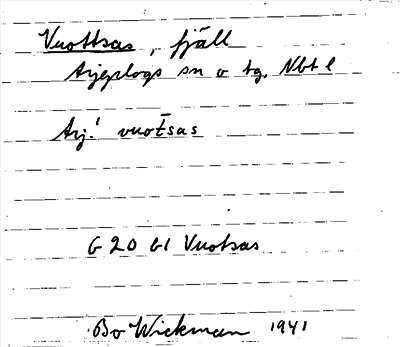 Vuottsas, fjäll
Arjeplogs sn o tg, Nbt l
Arj.! vuot̄sas
G 20 Gl Vuotsas
Bo Wickman 1941